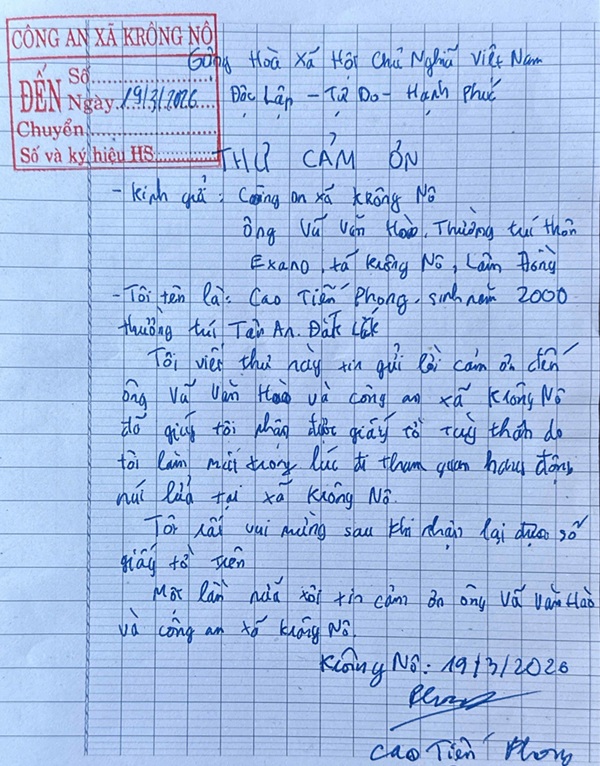 CÔNG AN XÃ KRÔNG NÔ
ĐẾN
Số
Ngày 19/3/2026
Chuyển
Số và ký hiệu HS
Cộng Hoà Xã Hội Chủ Nghĩa Việt Nam
Độc Lập - Tự Do - Hạnh Phúc
THƯ CẢM ƠN
- Kính gửi: Công an xã Krông Nô
Ông Vũ Văn Hoà. Thường trú thôn
Exano, xã Krông Nô, Lâm Đồng
- Tôi tên là: Cao Tiến Phong. sinh năm 2000
thường trú Tân An. Đăk Lăk
Tôi viết thư này xin gửi lời cảm ơn đến
ông Vũ Văn Hoà và công an xã Krông Nô
đã giúp tôi nhận được giấy tờ tuỳ thân do
tôi làm mất trong lúc đi tham quan hang động
núi lửa tại xã Krông Nô.
Tôi rất vui mừng sau khi nhận lại được số
giấy tờ trên
Một lần nữa tôi xin cảm ơn ông Vũ Văn Hào
và công an xã Krông Nô.
Krông Nô: 19/3/2026
Cao Tiến Phong